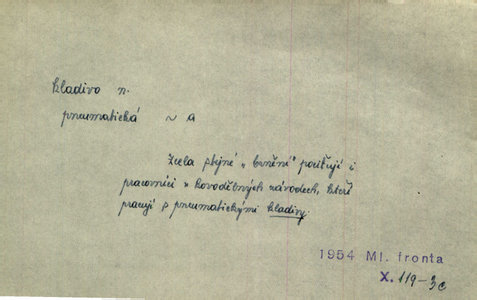 kladivo n.
pneumatická ~ a
Zcela stejné „brnění" pociťují i
pracovníci v kovodělných závodech, kteří
pracují s pneumatickými kladivy.
1954 Ml. fronta
X. 119-3c